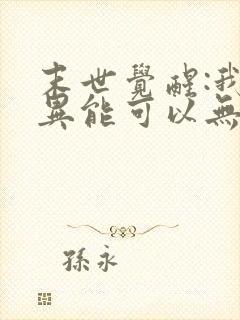 末世覺醒:我
異能可以無
孫永